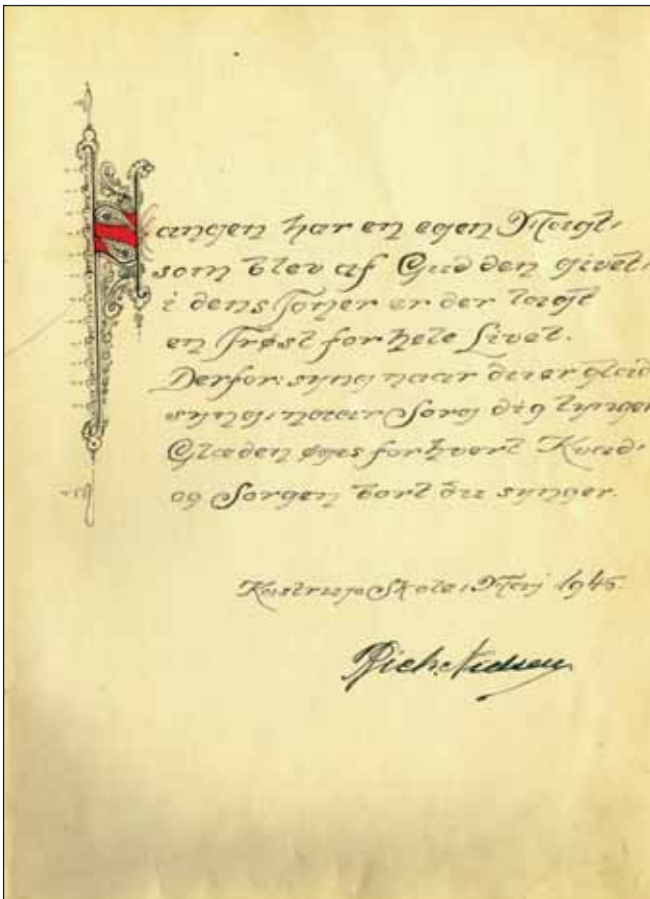 Sangen har en egen Magt,
som blev af Gud den givet,
i dens Toner er der lagt
en Trøst for hele Livet.
Derfor: syng naar du er glad
syng, naar Sorg dig tynger
Glæden øges for hvert Kvad,
og Sorgen bort du synger.
Kastrup Skole, Maj 1945.
Rich. Nielsen